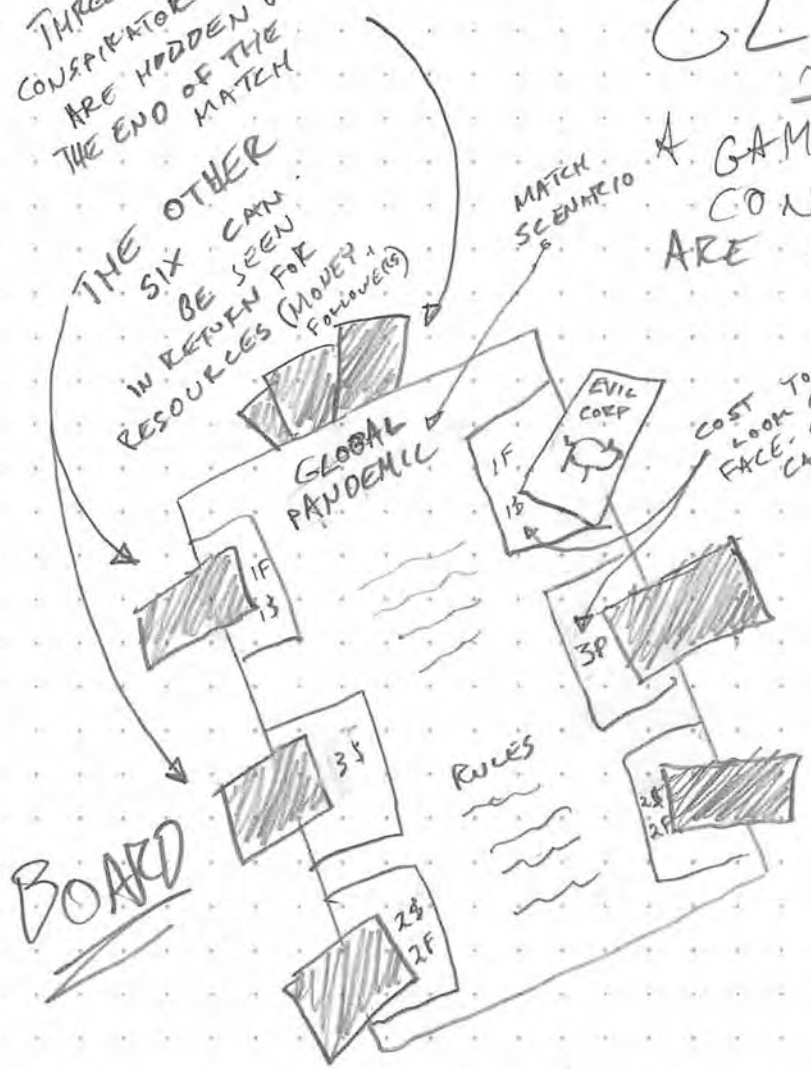 THREE
CONSPIRATOR
ARE HIDDEN
THE END OF THE
MATCH
THE OTHER
SIX CAN
BE SEEN
IN RETURN FOR
RESOURCES (MONEY +
FOLLOWERS)
MATCH
SCENARIO
CL
A GAM
CON
ARE
GLOBAL
PANDEMIC
EVIL
CORP
1F
1$
COST TO
LOOK
FACE.
CA
1F
1$
3F
3$
RULES
2$
2F
2$
2F
BOARD